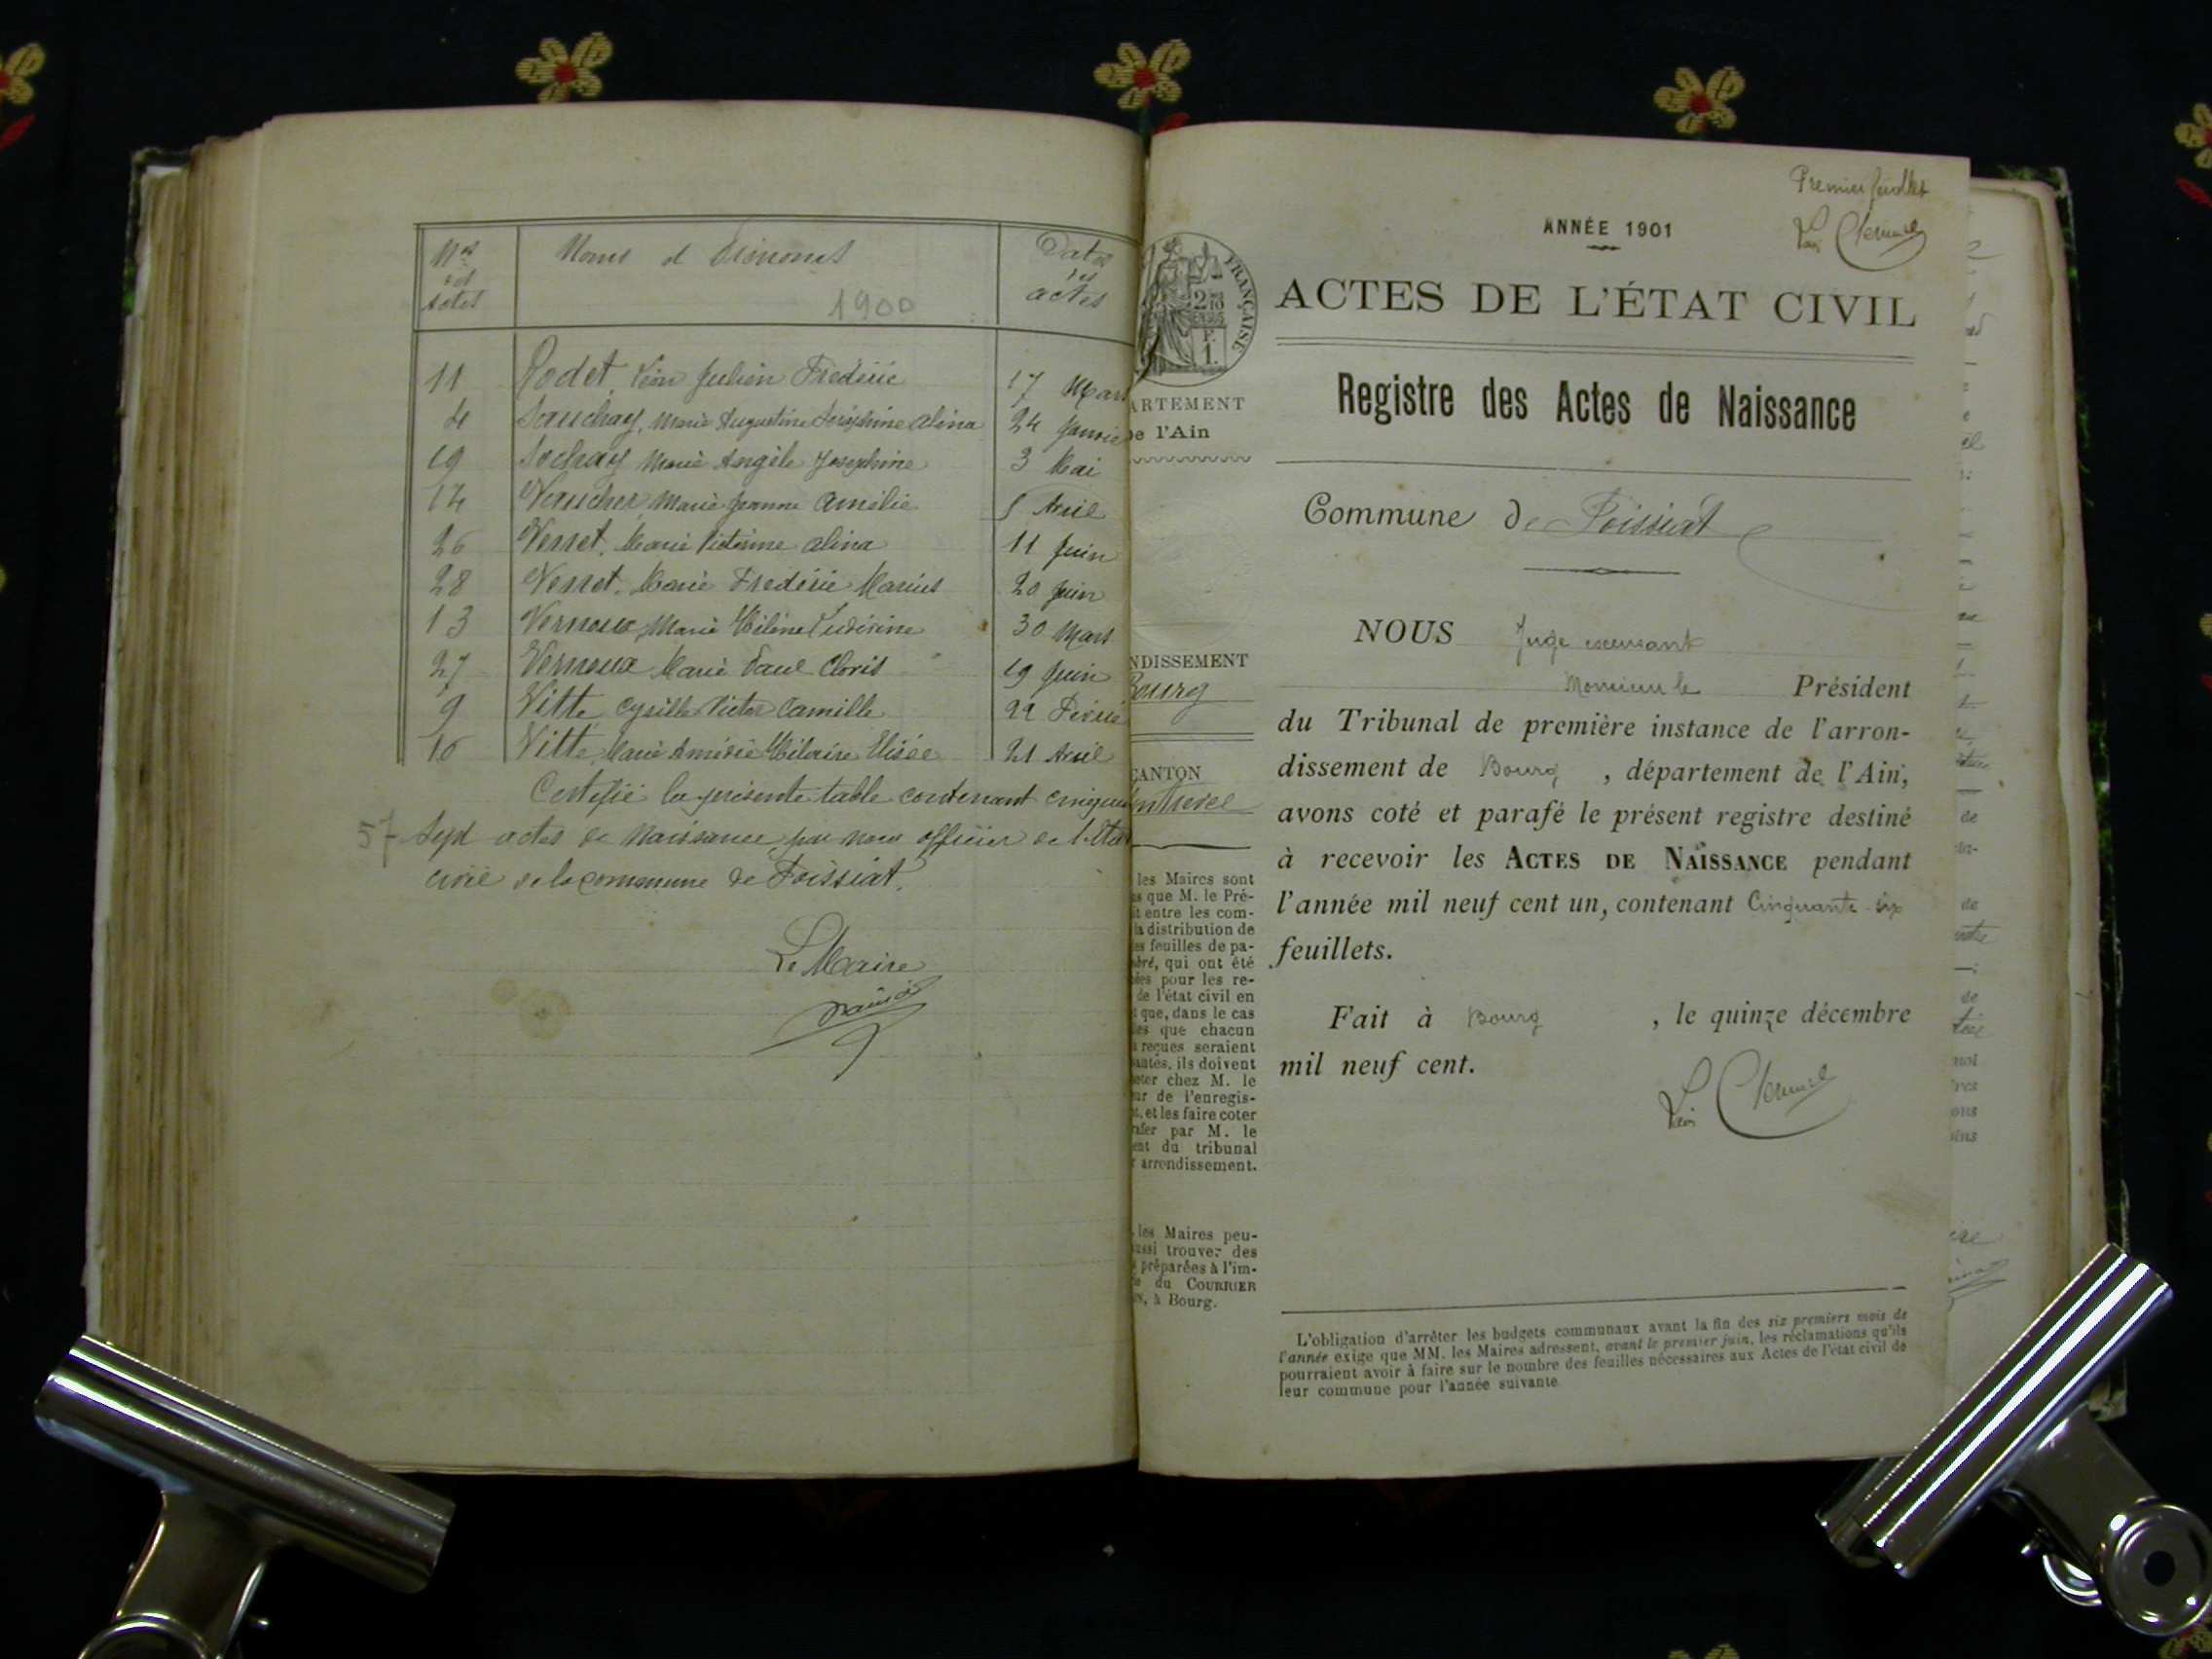 Nos des actes
Noms et Prénoms
1900
Dates des actes
11 Rodet, Léon Julien Frédéric 17 Mars
4 Sauchay, Marie Augustine Joséphine Alina 24 Janvie
19 Sochay Marie Angèle Joséphine 3 Mai
14 Vaucher Marie Jeanne Amélie 5 Avril
26 Verret, Marie Victorine Alina 11 Juin
28 Verret, Marie Frédéric Marius 20 Juin
13 Vernoux Marie Hélène 30 Mars
27 Vernoux Marie Paul Cloris 19 Juin
9 Vitte Cyrille Victor Camille 22
16 Vitte, Marie Hilaire Elisée 21 Avril
Certifié la présente table contenant cinquan
57 Sept actes de Naissance par nous officier de l'Etat
civil de la commune de Foissiat.
Le Maire
Premier feuillet
Léon
ANNÉE 1901
ACTES DE L'ÉTAT CIVIL
Registre des Actes de Naissance
Commune de Foissiat
NOUS Juge
Monsieur le Président
du Tribunal de première instance de l'arron-
dissement de Bourg, département de l'Ain,
avons coté et parafé le présent registre destiné
à recevoir les ACTES DE NAISSANCE pendant
l'année mil neuf cent un, contenant Cinquante-six
feuillets.
Fait à Bourg, le quinze décembre
mil neuf cent.
Léon
L'obligation d'arrêter les budgets communaux avant la fin des six premiers mois de
l'année exige que MM. les Maires adressent, avant le premier juin, les réclamations qu'ils
pourraient avoir à faire sur le nombre des feuilles nécessaires aux Actes de l'état civil de
leur commune pour l'année suivante
FRANÇAISE
ARTEMENT
de l'Ain
NDISSEMENT
Bourg
CANTON
les Maires sont
s que M. le Pré-
it entre les com-
la distribution de
es feuilles de pa-
bré, qui ont été
ées pour les re-
de l'état civil en
t que, dans le cas
les que chacun
reçues seraient
antes, ils doivent
eter chez M. le
ur de l'enregis-
t, et les faire coter
rafer par M. le
ent du tribunal
arrondissement.
les Maires peu-
ussi trouver des
préparées à l'im-
e du COURRIER
N, à Bourg.